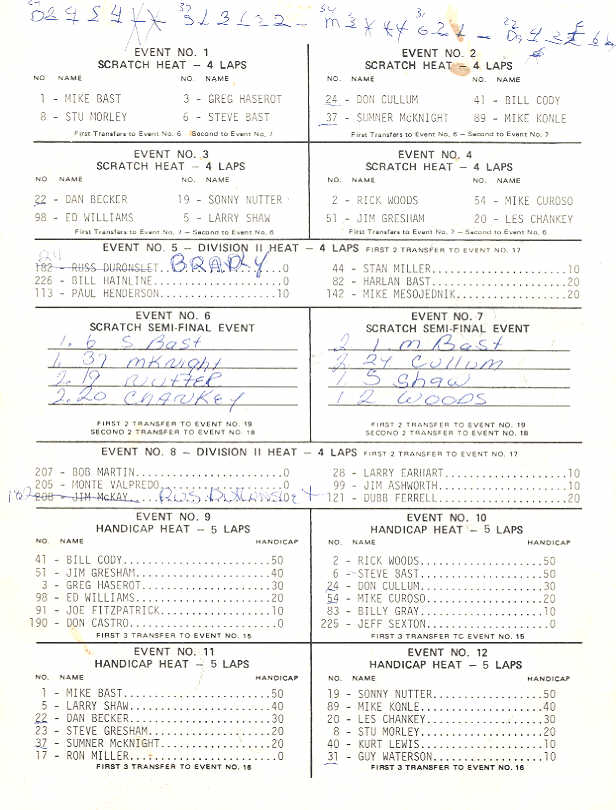 EVENT NO. 1
SCRATCH HEAT – 4 LAPS
NO NAME NO. NAME
1 - MIKE BAST 3 - GREG HASEROT
8 - STU MORLEY 6 - STEVE BAST
First Transfers to Event No. 6 Second to Event No. 7
EVENT NO. 2
SCRATCH HEAT – 4 LAPS
NO. NAME NO. NAME
24 - DON CULLUM 41 - BILL CODY
37 - SUMNER McKNIGHT 89 - MIKE KONLE
First Transfers to Event No. 6 – Second to Event No. 7
EVENT NO. 3
SCRATCH HEAT – 4 LAPS
NO NAME NO. NAME
22 - DAN BECKER 19 - SONNY NUTTER
98 - ED WILLIAMS 5 - LARRY SHAW
First Transfers to Event No. 7 – Second to Event No. 6
EVENT NO. 4
SCRATCH HEAT – 4 LAPS
NO. NAME NO. NAME
2 - RICK WOODS 54 - MIKE CUROSO
51 - JIM GRESHAM 20 - LES CHANKEY
First Transfers to Event No. 7 – Second to Event No. 6
EVENT NO. 5 – DIVISION II HEAT – 4 LAPS FIRST 2 TRANSFER TO EVENT NO. 17
182 - RUSS DURONSLET BRADY 0
226 - BILL HAINLINE 0
113 - PAUL HENDERSON 10
44 - STAN MILLER 10
82 - HARLAN BAST 20
142 - MIKE MESOJEDNIK 20
EVENT NO. 6
SCRATCH SEMI-FINAL EVENT
1. 6 S BAST
1. 37 McKnight
2. 19 NUTTER
2. 20 CHANKEY
FIRST 2 TRANSFER TO EVENT NO. 19
SECOND 2 TRANSFER TO EVENT NO. 18
EVENT NO. 7
SCRATCH SEMI-FINAL EVENT
2 1. M Bast
2 24 Cullum
1 5 Shaw
1 2 WOODS
FIRST 2 TRANSFER TO EVENT NO. 19
SECOND 2 TRANSFER TO EVENT NO. 18
EVENT NO. 8 – DIVISION II HEAT – 4 LAPS FIRST 2 TRANSFER TO EVENT NO. 17
207 - BOB MARTIN 0
205 - MONTE VALPREDO 0
182 208 - JIM McKAY
28 - LARRY EARHART 10
99 - JIM ASHWORTH 10
121 - DUBB FERRELL 20
EVENT NO. 9
HANDICAP HEAT – 5 LAPS
NO. NAME HANDICAP
41 - BILL CODY 50
51 - JIM GRESHAM 40
3 - GREG HASEROT 30
98 - ED WILLIAMS 20
91 - JOE FITZPATRICK 10
190 - DON CASTRO 0
FIRST 3 TRANSFER TO EVENT NO. 15
EVENT NO. 10
HANDICAP HEAT – 5 LAPS
NO. NAME HANDICAP
2 - RICK WOODS 50
6 - STEVE BAST 50
24 - DON CULLUM 30
54 - MIKE CUROSO 20
83 - BILLY GRAY 10
225 - JEFF SEXTON 0
FIRST 3 TRANSFER TO EVENT NO. 15
EVENT NO. 11
HANDICAP HEAT – 5 LAPS
NO. NAME HANDICAP
1 - MIKE BAST 50
5 - LARRY SHAW 40
22 - DAN BECKER 30
23 - STEVE GRESHAM 20
37 - SUMNER McKNIGHT 20
17 - RON MILLER 0
FIRST 3 TRANSFER TO EVENT NO. 16
EVENT NO. 12
HANDICAP HEAT – 5 LAPS
NO. NAME HANDICAP
19 - SONNY NUTTER 50
89 - MIKE KONLE 40
20 - LES CHANKEY 30
8 - STU MORLEY 20
40 - KURT LEWIS 10
31 - GUY WATERSON 10
FIRST 3 TRANSFER TO EVENT NO. 16